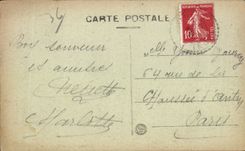 CARTE POSTALE
Bon souvenir
et amitiés
Charlotte
10
Mlle Yvonne
64 rue de la
Chaussée d'Antin
Paris